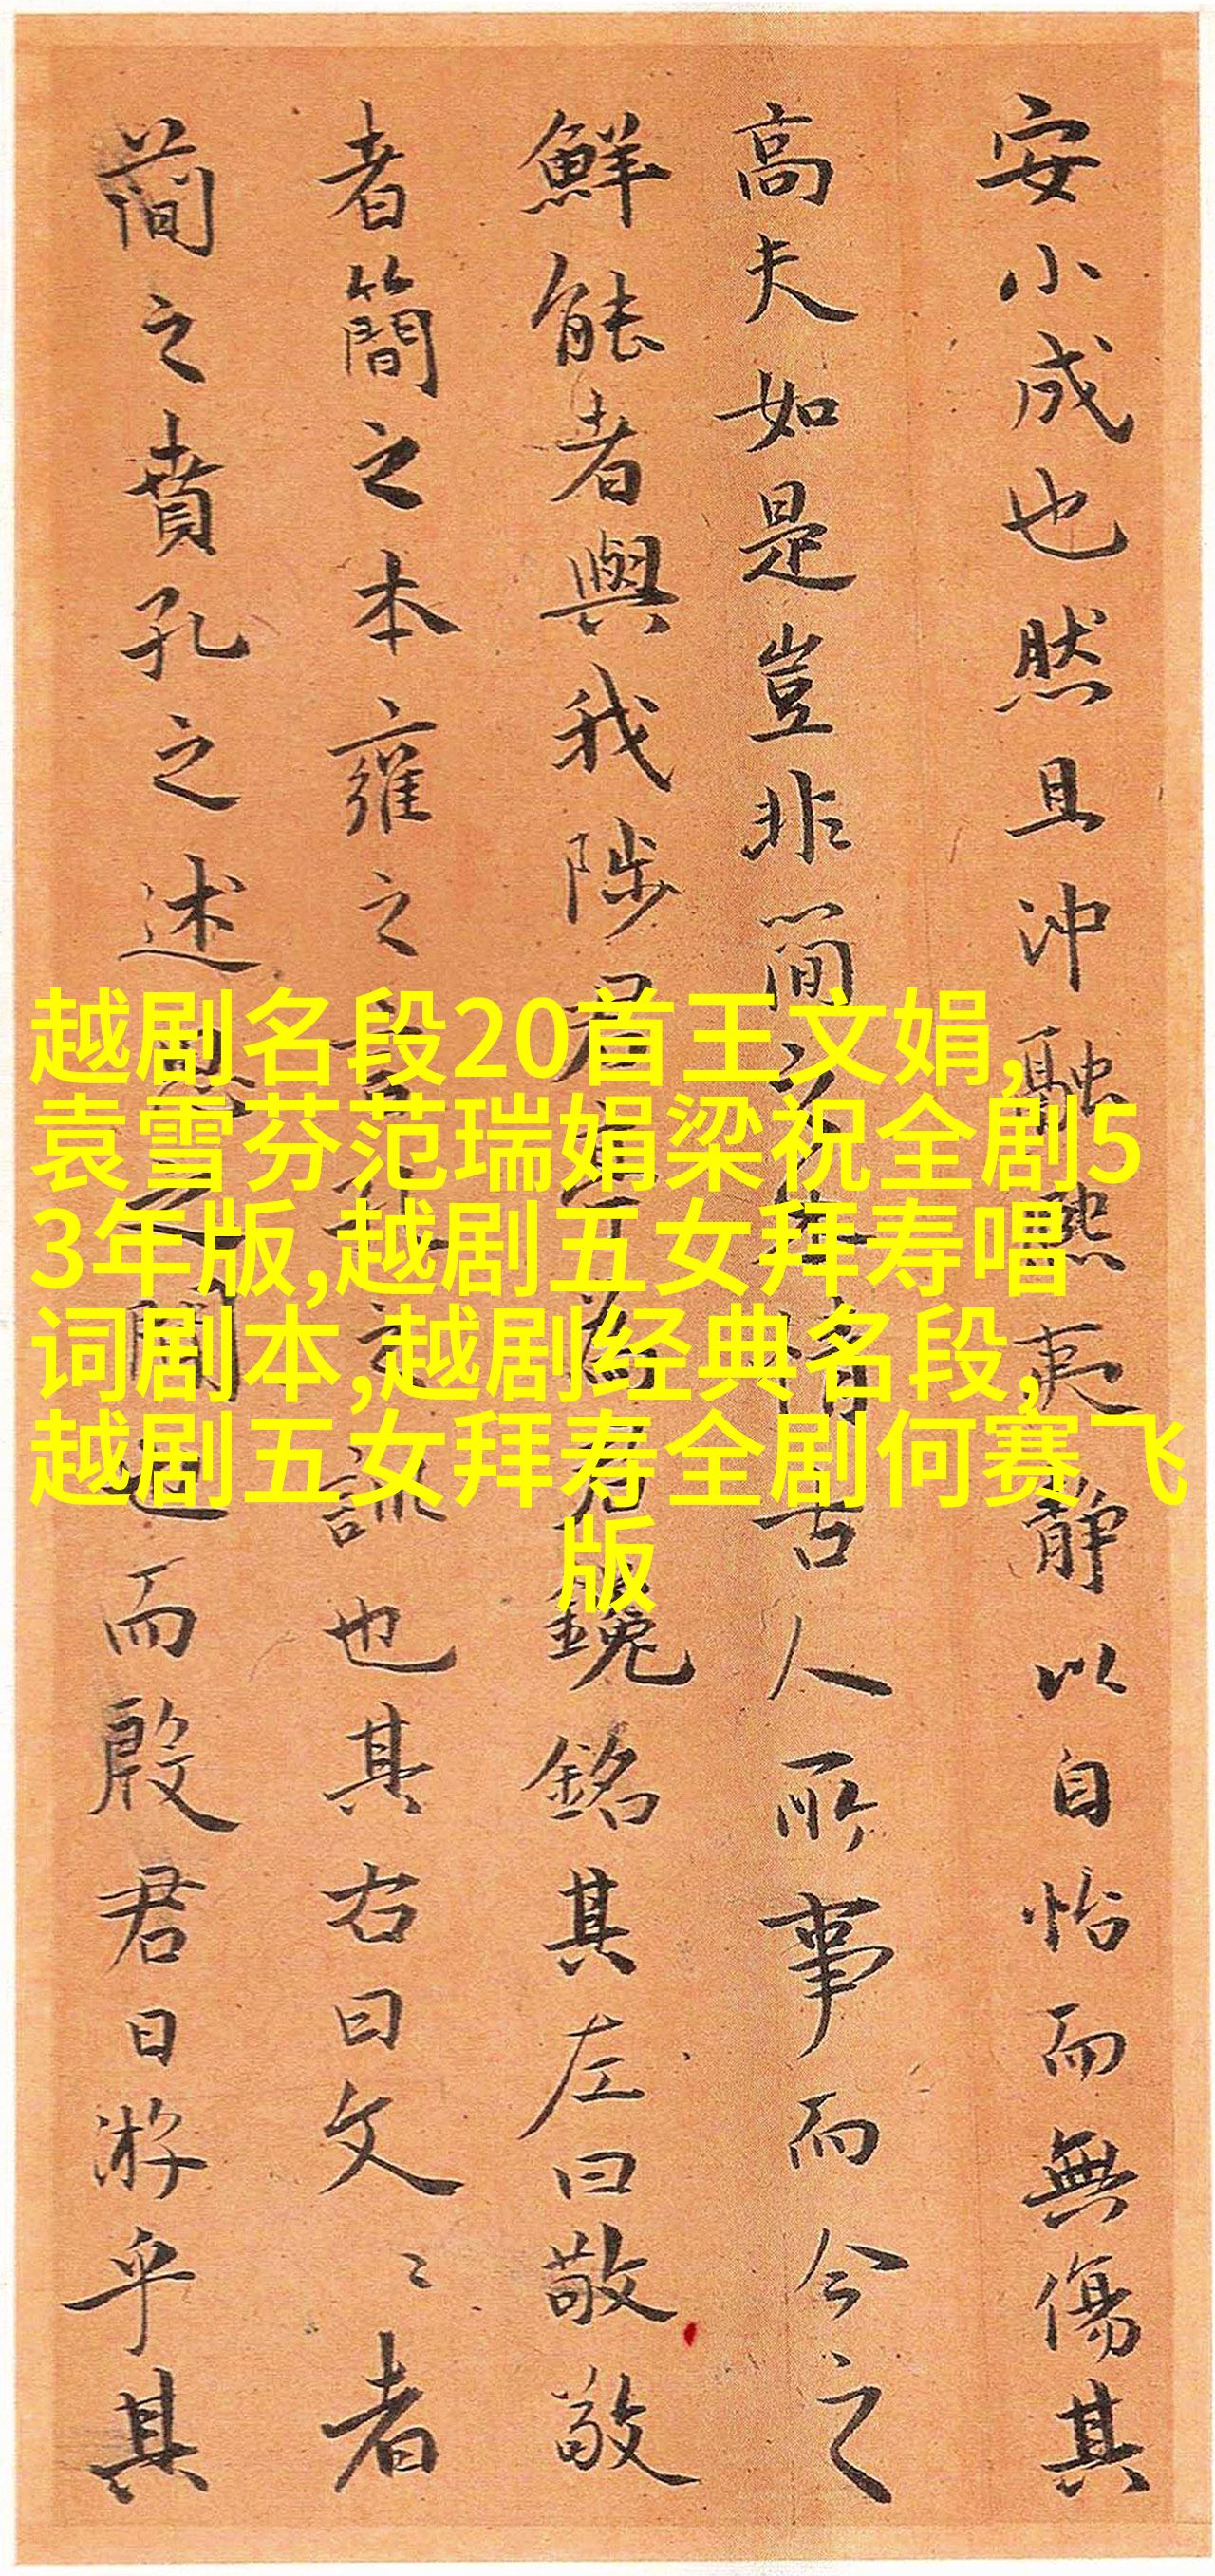 安小成也然且沖融熙夷静以自怡而無傷其
高夫如是豈非簡情古人所事而今之
鮮能者與我陟君為君鑱銘其左曰敬敬
者簡之本雍之言之訓也其右曰文〻者
簡之賁孔之述之聞而殷君日游乎其
越剧名段20首王文娟,
袁雪芬范瑞娟梁祝全剧5
3年版,越剧五女拜寿唱
词剧本,越剧经典名段,
越剧五女拜寿全剧何赛飞
版